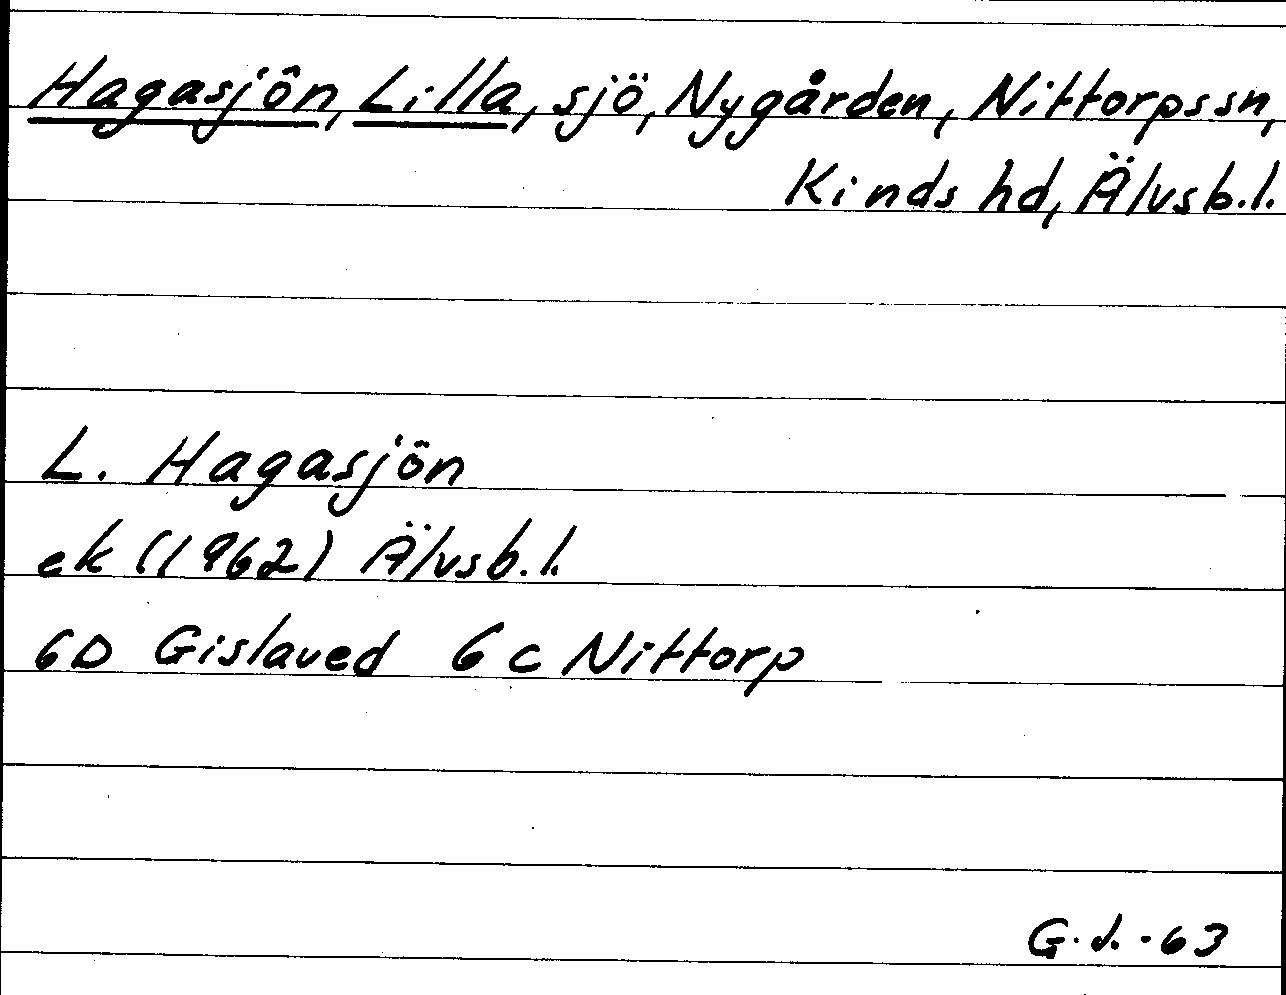 Hagasjön, Lilla, sjö, Nygården, Nittorps sn,
Kinds hd, Älvsb.l.
L. Hagasjön
ek (1962) Älvsb.l.
6D Gislaved 6c Nittorp
G.J.-63